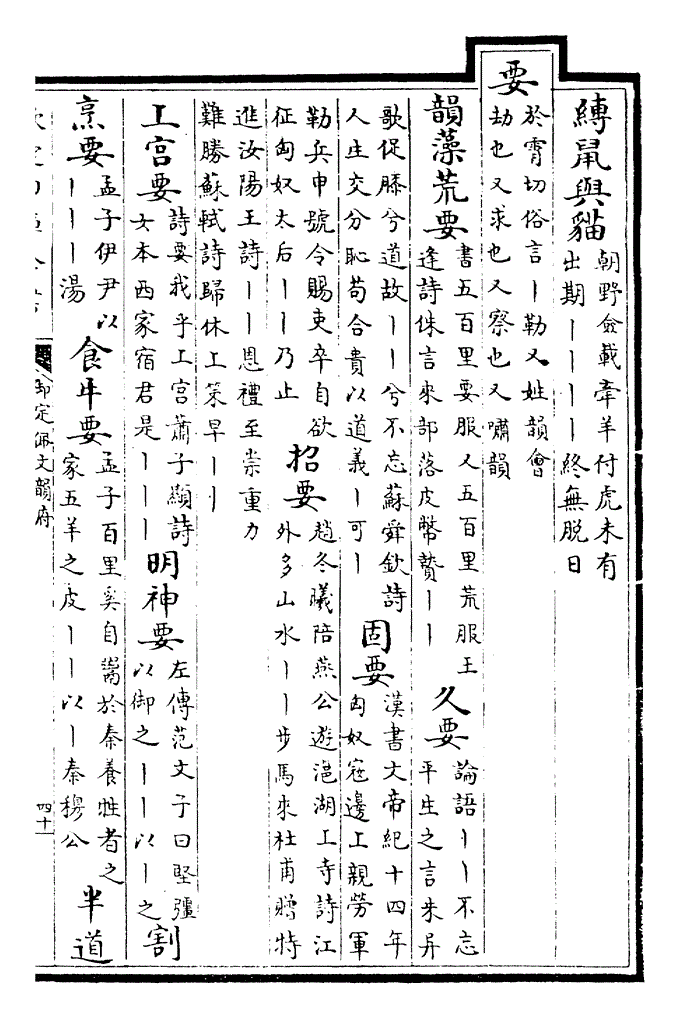 縛鼠與貓 朝野僉載牽羊付虎未有
出期丨丨丨丨終無脫日
要
於霄切俗言丨勒又姓韻會
劫也又求也又察也又嘯韻
韻藻荒要 書五百里要服又五百里荒服王
逢詩侏言來部落皮幣贄丨丨
久要 論語丨丨不忘
平生之言朱异
歌促膝兮道故丨丨兮不忘蘇舜欽詩
人生交分恥苟合貴以道義丨可丨
固要 漢書文帝紀十四年
匈奴寇邊上親勞軍
勒兵申號令賜吏卒自欲
征匈奴太后丨丨乃止
招要 趙冬曦陪燕公遊㴩湖上寺詩江
外多山水丨丨步馬來杜甫贈特
進汝陽王詩丨丨恩禮至崇重力
難勝蘇軾詩歸休上策早丨丨
工宮要 詩要我乎上宮蕭子顯詩
女本西家宿君是丨丨丨
明神要 左傳范文子曰堅彊
以御之丨丨以丨之
割
烹要 孟子伊尹以
丨丨丨湯
食牛要 孟子百里奚自鬻於秦養牲者之
家五羊之皮丨丨以丨秦穆公
半道
御定佩文韻府
四十